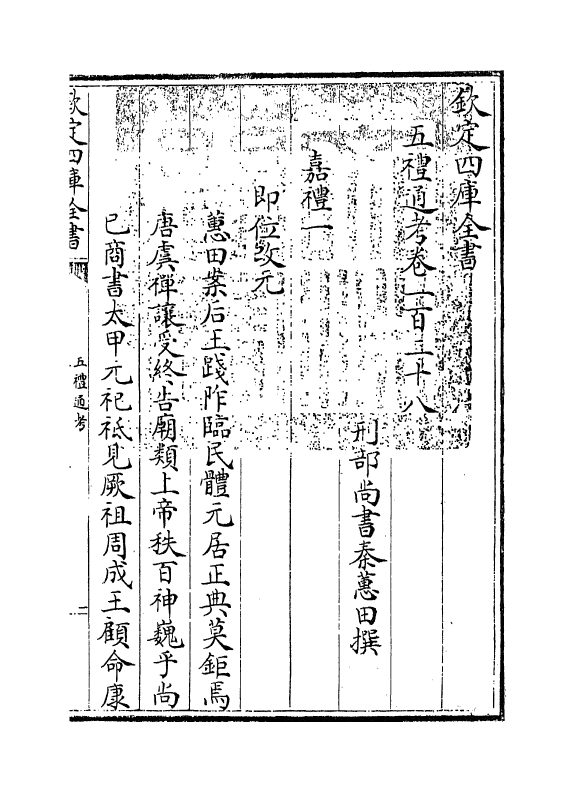 欽定四庫全書
五禮通考卷一百二十八
刑部尚書秦蕙田撰
嘉禮一
即位改元
蕙田案后王踐阼臨民體元居正典莫鉅焉
唐虞禪讓受終告廟類上帝秩百神巍乎尚
已商書太甲元祀祗見厥祖周成王顧命康
欽定四庫全書
五禮通考
一